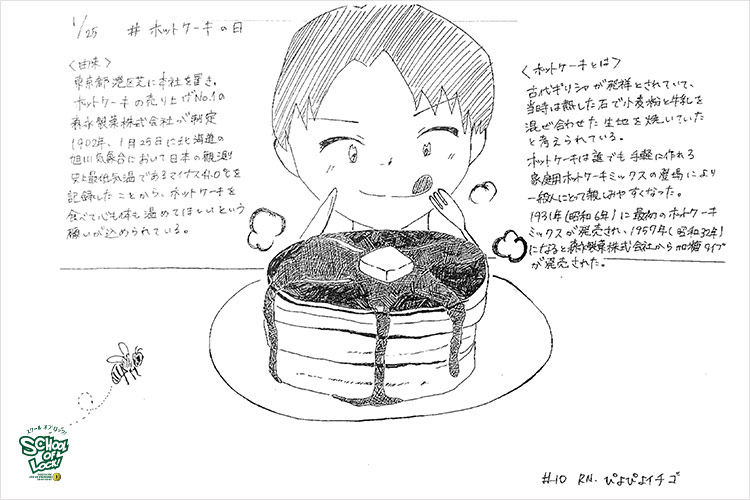 1/25 # ホットケーキの日
<由来>
東京都港区芝に本社を置き、
ホットケーキの売り上げNo.1の
森永製菓株式会社が制定
1902年、1月25日に北海道の
旭川気象台において日本の観測
史上最低気温であるマイナス41.0℃を
記録したことから、ホットケーキを
食べて心も体も温めてほしいという
願いが込められている。
<ホットケーキとは>
古代ギリシャが発祥とされていて、
当時は熱した石で小麦粉と牛乳を
混ぜ合わせた生地を焼いていた
と考えられている。
ホットケーキは誰でも手軽に作れる
家庭用ホットケーキミックスの登場により
一般人にとって親しみやすくなった。
1931年(昭和6年)に最初のホットケーキ
ミックスが発売され、1957年(昭和32年)
になると森永製菓株式会社から加糖タイプ
が発売された。
スクール オブ ロック!
SCHOOL
OF
LOCK!
#10 RN. ぴよぴよイチゴ